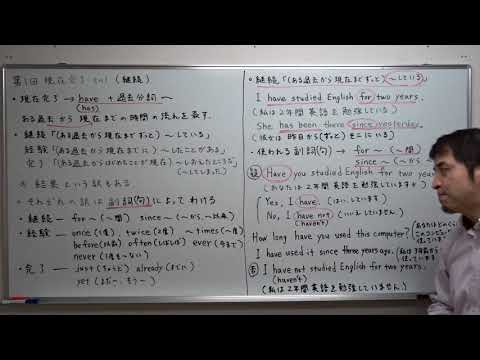 第1回 現在完了 その1 (継続)
・現在完了 → have + 過去分詞 〜
(has)
ある過去から 現在までの 時間の流れを表す.
・継続「(ある過去から 現在までずっと) 〜している」
経験「(ある過去から現在までに) 〜したことがある」
完了「(ある過去からはじめたことが現在) 〜し
(〜してしまった)
☆ 結果 という訳もある.
・それぞれの訳は 副詞(句) によってわける
・継続 ― for 〜 (〜間) since 〜 (〜から, 〜以来)
・経験 ― once (1度) twice (2度) 〜 times (〜度)
before (以前) often (しばしば) ever (今まで)
never (1度も〜ない)
・完了 ― just (ちょうど) already (すでに)
yet (まだ〜, もう〜)
・継続「(ある過去から 現在までずっと) 〜している」
I have studied English for two years.
(私は2年間 英語を勉強している)
She has been there since yesterday.
(彼女は昨日から(ずっと)そこにいる)
・使われる副詞(句) → for 〜 (〜間)
since 〜 (〜から
疑 Have you studied English for two years
(あなたは2年間 英語を勉強していますか)
Yes, I have. (はい, しています)
No, I have not. (いいえ, していません)
(haven't)
How long have you used this computer?
I have used it since three years ago.
否 I have not studied English for two years.
(haven't)
(私は2年間英語を勉強していません.)